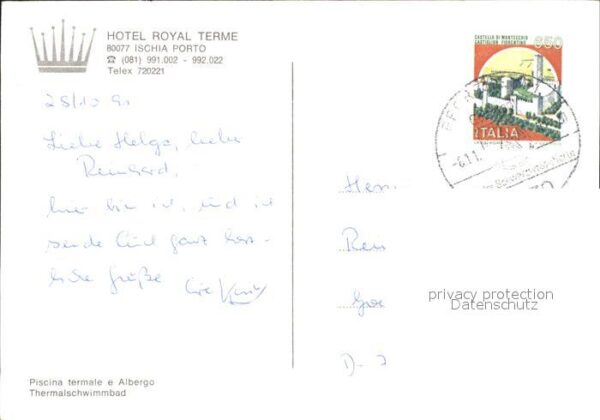 HOTEL ROYAL TERME
80077 ISCHIA PORTO
☎ (081) 991.002 - 992.022
Telex 720221
CASTELLO DI MONTECCHIO
CASTIGLION FIORENTINO
650
ITALIA
28/10 91
Liebe Helga, lieber
Reinhard,
hier bin ich, und ich
sende Euch ganz herz-
liche Grüße
Herrn
Rein
Goe
D-
privacy protection
Datenschutz
Piscina termale e Albergo
Thermalschwimmbad